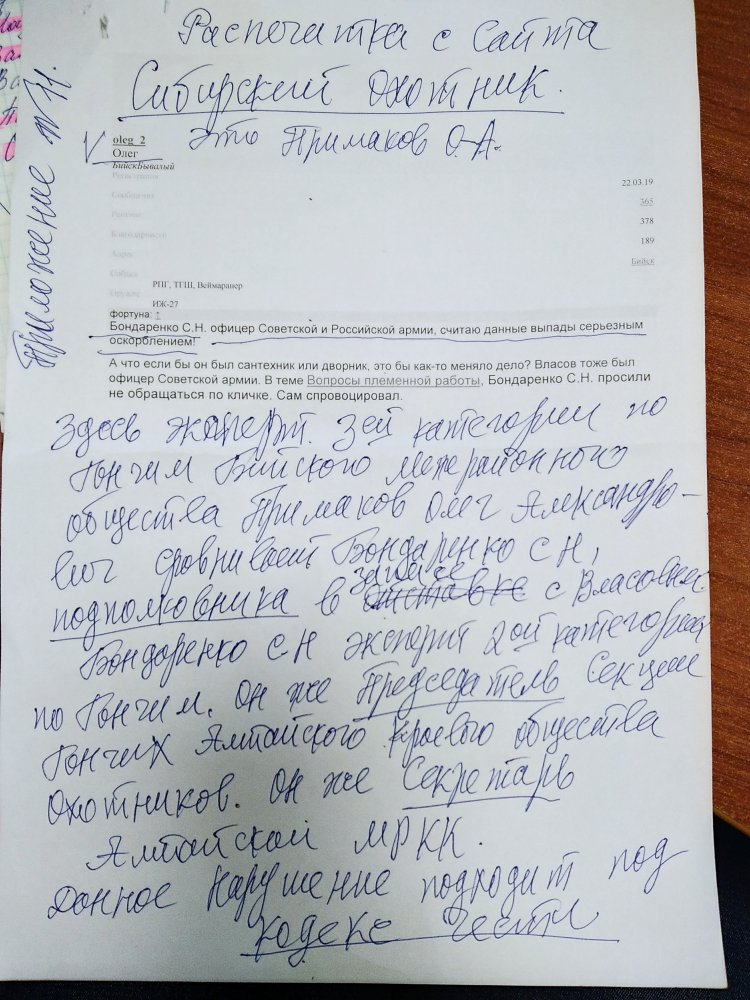 Распечатка с Сайта
Сибирский охотник.
Приложение №11.
oleg_2
это Примаков О.А.
Олег
БийскБывалый
Регистрация
22.03.19
Сообщения
365
Рейтинг
378
Благодарности
189
Адрес
Бийск
Собака
РПГ, ТГШ, Веймаранер
Оружие
ИЖ-27
фортуна:
Бондаренко С.Н. офицер Советской и Российской армии, считаю данные выпады серьезным
оскорблением!
А что если бы он был сантехник или дворник, это бы как-то меняло дело? Власов тоже был
офицер Советской армии. В теме Вопросы племенной работы, Бондаренко С.Н. просили
не обращаться по кличке. Сам спровоцировал.
Здесь эксперт 3ей категории по
Гончим Бийского межрайонного
общества Примаков Олег Александро-
вич сравнивает Бондаренко С Н,
подполковника в запасе отставке с Власовым.
Бондаренко С Н эксперт 2ой категории
по Гончим. Он же Председатель Секции
Гончих Алтайского краевого общества
Охотников. Он же Секретарь
Алтайской МРКК.
Данное Нарушение подходит под
кодекс чести